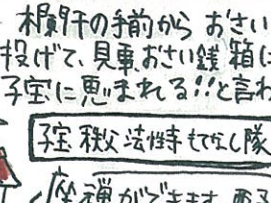 欄干の手前から おさい
投げて、見事、おさい銭箱に
子宝に恵まれる!!と言わ
子宝 秩父 法性寺 もてなし隊
座禅ができます。